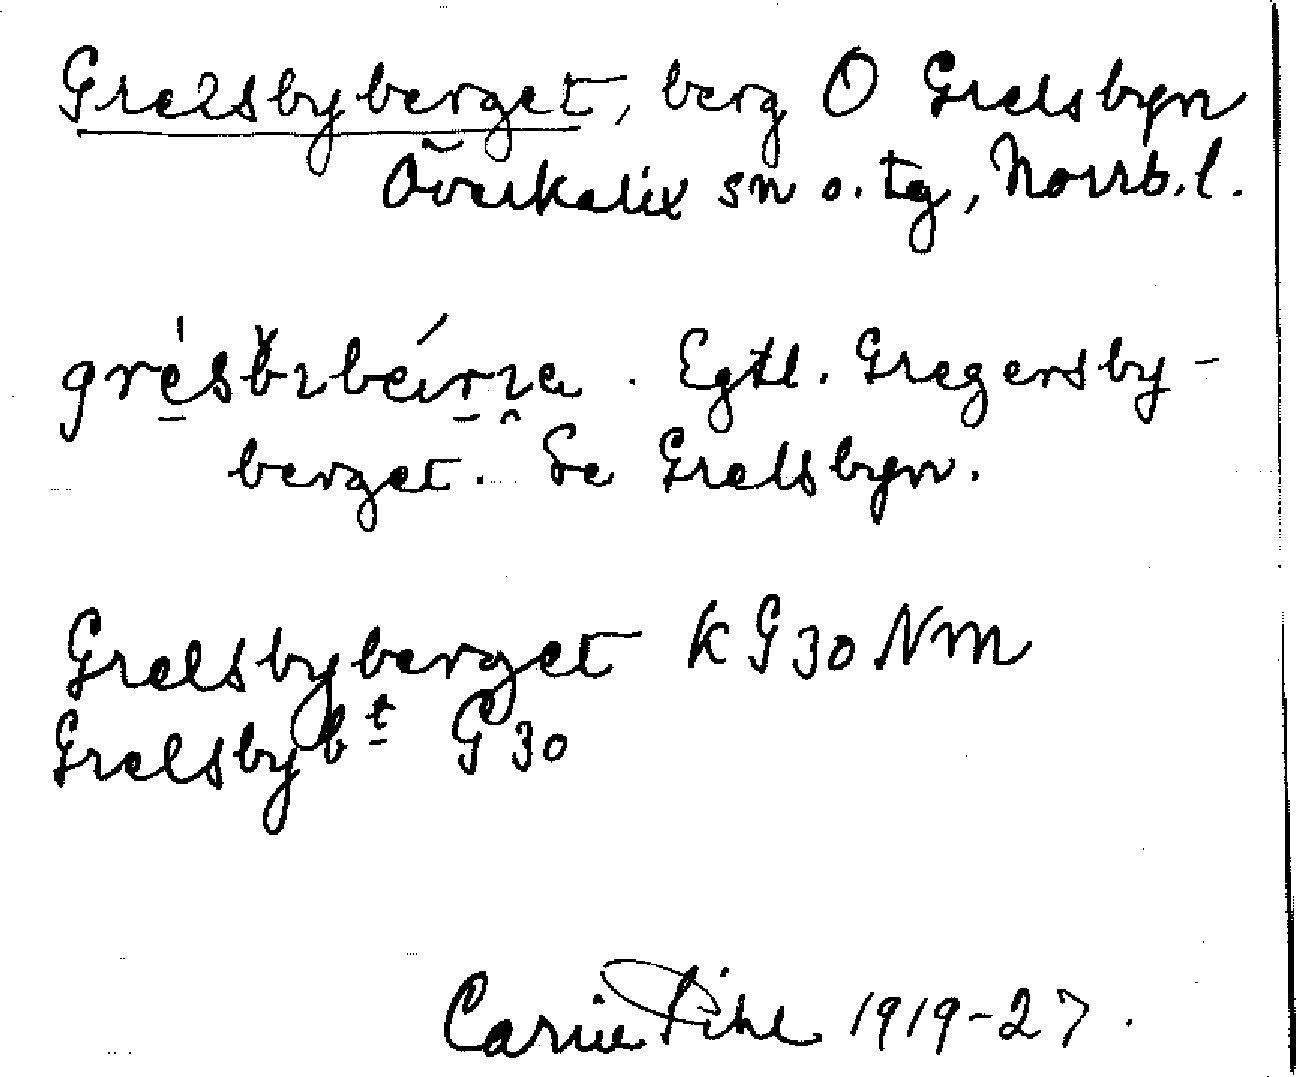 Grelsbyberget, berg O Grelsbyn
Överkalix sn o. tg, Norrb. l.
Egtl. Gregersby-
berget. Se Grelsbyn.
Grelsbyberget K G 30 NM
Grelsbybt G 30
Carrie Pihl 1919-27.